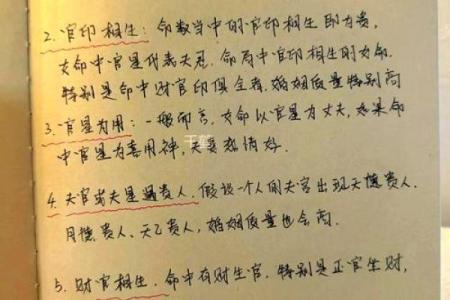 2. 官印相生：命数当中的官印相生即为贵，
女命中官星代表夫冠。命局中官印相生的女命。
特别是命中财官印俱全者，婚姻质量特别高
3. 官星为用：一般而言，女命以官星为丈夫，如果命
中官星为喜用神，夫妻感情好。
4. 夫宫或夫星遇贵人，假设一个人的夫宫出现天德贵人、
月德贵人、天乙贵人，婚姻质量也会高。
5. 财官相生。命中有财生官，特别是正官生财，